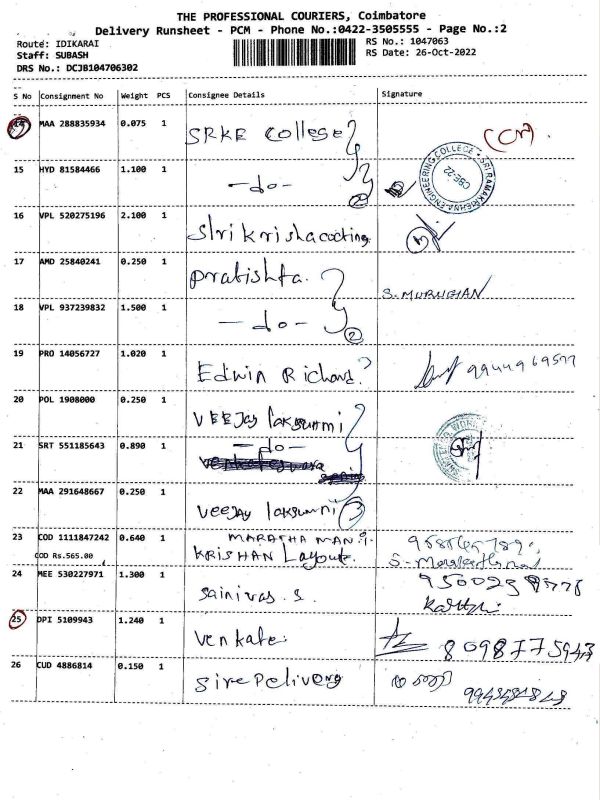 THE PROFESSIONAL COURIERS, Coimbatore
Delivery Runsheet - PCM - Phone No.:0422-3505555 - Page No.:2
Route: IDIKARAI
Staff: SUBASH
DRS No.: DCJB104706302
RS No.: 1047063
RS Date: 26-Oct-2022
S No Consignment No Weight PCS Consignee Details Signature
14 MAA 288835934 0.075 1 SRKE College (CM).
15 HYD 81584466 1.100 1 -do- 2
SRI RAMAKRISHNA ENGINEERING COLLEGE CBE-22
16 VPL 520275196 2.100 1 Shri krishacocting
17 AMD 25840241 0.250 1 pratishta. S. MURUGIAN
18 VPL 937239832 1.500 1 -do- 2
19 PRO 14056727 1.020 1 Edwin Richard
20 POL 1908000 0.250 1 VEEJay laksummi
21 SRT 551185643 0.890 1 -do-
22 MAA 291648667 0.250 1 veejay laksumni 3
23 COD 1111847242 0.640 1 MARATHA MANI
COD Rs.565.00 KRISHAN Layout.
24 MEE 530227971 1.300 1 Sainivas. S.
25 DPI 5109943 1.240 1 Venkate. 8098775943
26 CUD 4886814 0.150 1 Sire Delivery